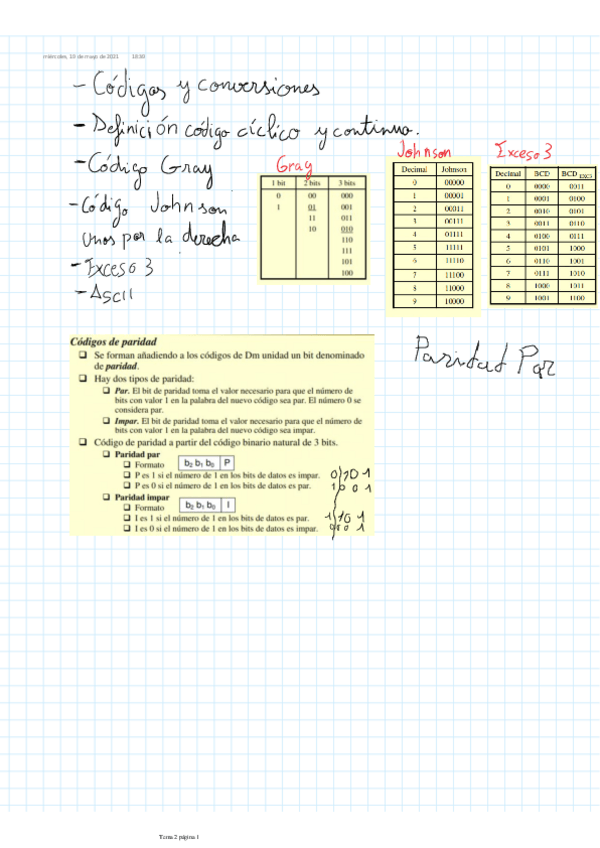 miércoles, 19 de mayo de 2021 18:30
- Códigos y conversiones
- Definición código cíclico y continuo.
- Código Gray
- Código Johnson
Unos por la derecha
- Exceso 3
- ASCII
Gray
1 bit 2 bits 3 bits
0 00 000
1 01 001
11 011
10 010
110
111
101
100
Johnson
Decimal Johnson
0 00000
1 00001
2 00011
3 00111
4 01111
5 11111
6 11110
7 11100
8 11000
9 10000
Exceso 3
Decimal BCD BCD EXC3
0 0000 0011
1 0001 0100
2 0010 0101
3 0011 0110
4 0100 0111
5 0101 1000
6 0110 1001
7 0111 1010
8 1000 1011
9 1001 1100
Códigos de paridad
Se forman añadiendo a los códigos de Dm unidad un bit denominado
de paridad.
Hay dos tipos de paridad:
Par. El bit de paridad toma el valor necesario para que el número de
bits con valor 1 en la palabra del nuevo código sea par. El número 0 se
considera par.
Impar. El bit de paridad toma el valor necesario para que el número de
bits con valor 1 en la palabra del nuevo código sea impar.
Código de paridad a partir del código binario natural de 3 bits.
Paridad par
Formato b2 b1 b0 P
P es 1 si el número de 1 en los bits de datos es impar.
P es 0 si el número de 1 en los bits de datos es par.
Paridad impar
Formato b2 b1 b0 I
I es 1 si el número de 1 en los bits de datos es par.
I es 0 si el número de 1 en los bits de datos es impar.
Paridad Par
Tema 2 página 1